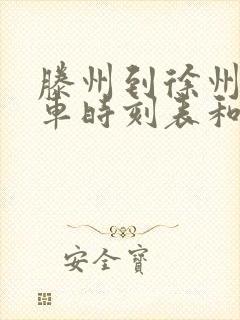 滕州到徐州
車時刻表和
安全寶